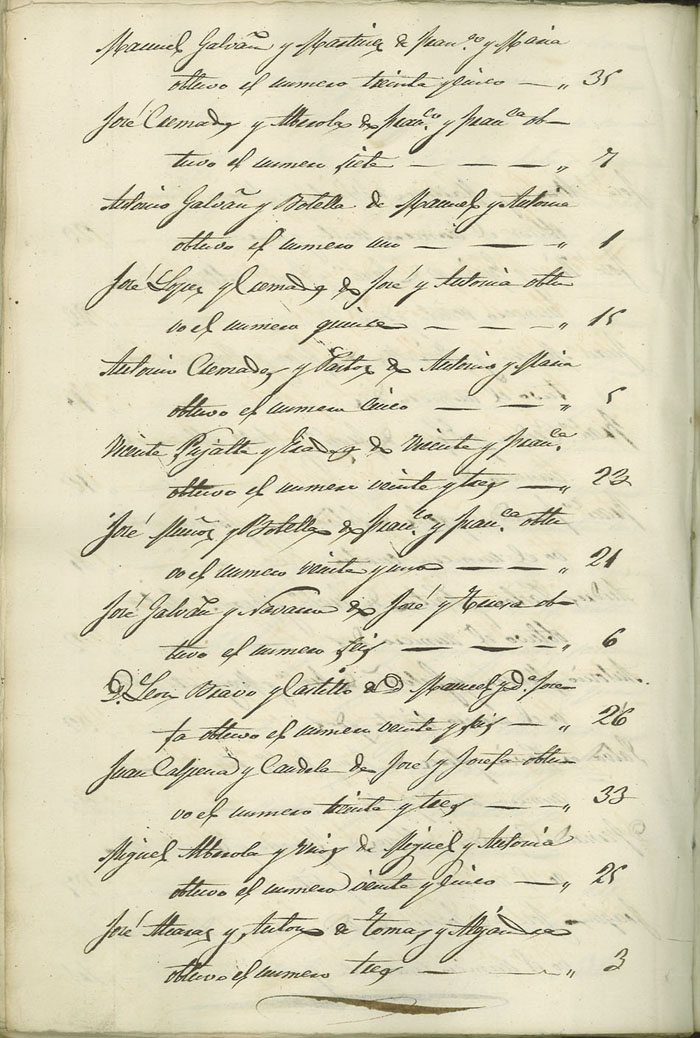 Manuel Galvañ y Martinez de Fran.co y Maria
obtuvo el numero treinta y cinco — „ 35
José Cremades y Alberola de Fran.co y Fran.ca ob-
tuvo el numero siete — — — „ 7
Antonio Galvañ y Botella de Manuel y Antonia
obtuvo el numero uno — — — „ 1
José Lopez y Cremades de José y Antonia obtu
vo el numero quince — — — „ 15
Antonio Cremades y Pastor de Antonio y Maria
obtuvo el numero cinco — — — „ 5
Vicente Pujalte y de Vicente y Fran.ca
obtuvo el numero veinte y tres — „ 23
José Muñoz y Botella de Fran.co y Fran.ca obtu
vo el numero veinte y uno — — — „ 21
José Galvañ y Navarro de José y Teresa ob-
tuvo el numero seis — — — „ 6
D. Leon Bravo y Castillo de D. Manuel y D.a Jose-
fa obtuvo el numero veinte y seis — „ 26
Juan Calpena y Candela de José y Josefa obtu-
vo el numero treinta y tres — — „ 33
Miguel Alberola y de Miguel y Antonia
obtuvo el numero veinte y cinco — „ 25
José Alcaraz y Anton de Tomas y Alejandra
obtuvo el numero tres — — — „ 3